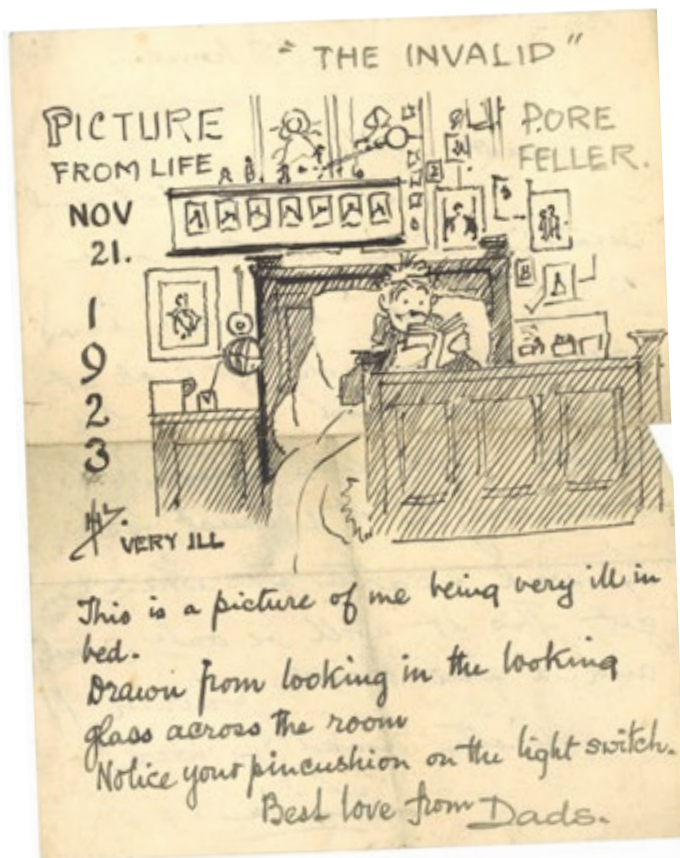 "THE INVALID"
PICTURE
FROM LIFE
NOV
21.
1
9
2
3
VERY ILL
PORE
FELLER.
This is a picture of me being very ill in
bed.
Drawn from looking in the looking
glass across the room
Notice your pincushion on the light switch.
Best love from Dads.